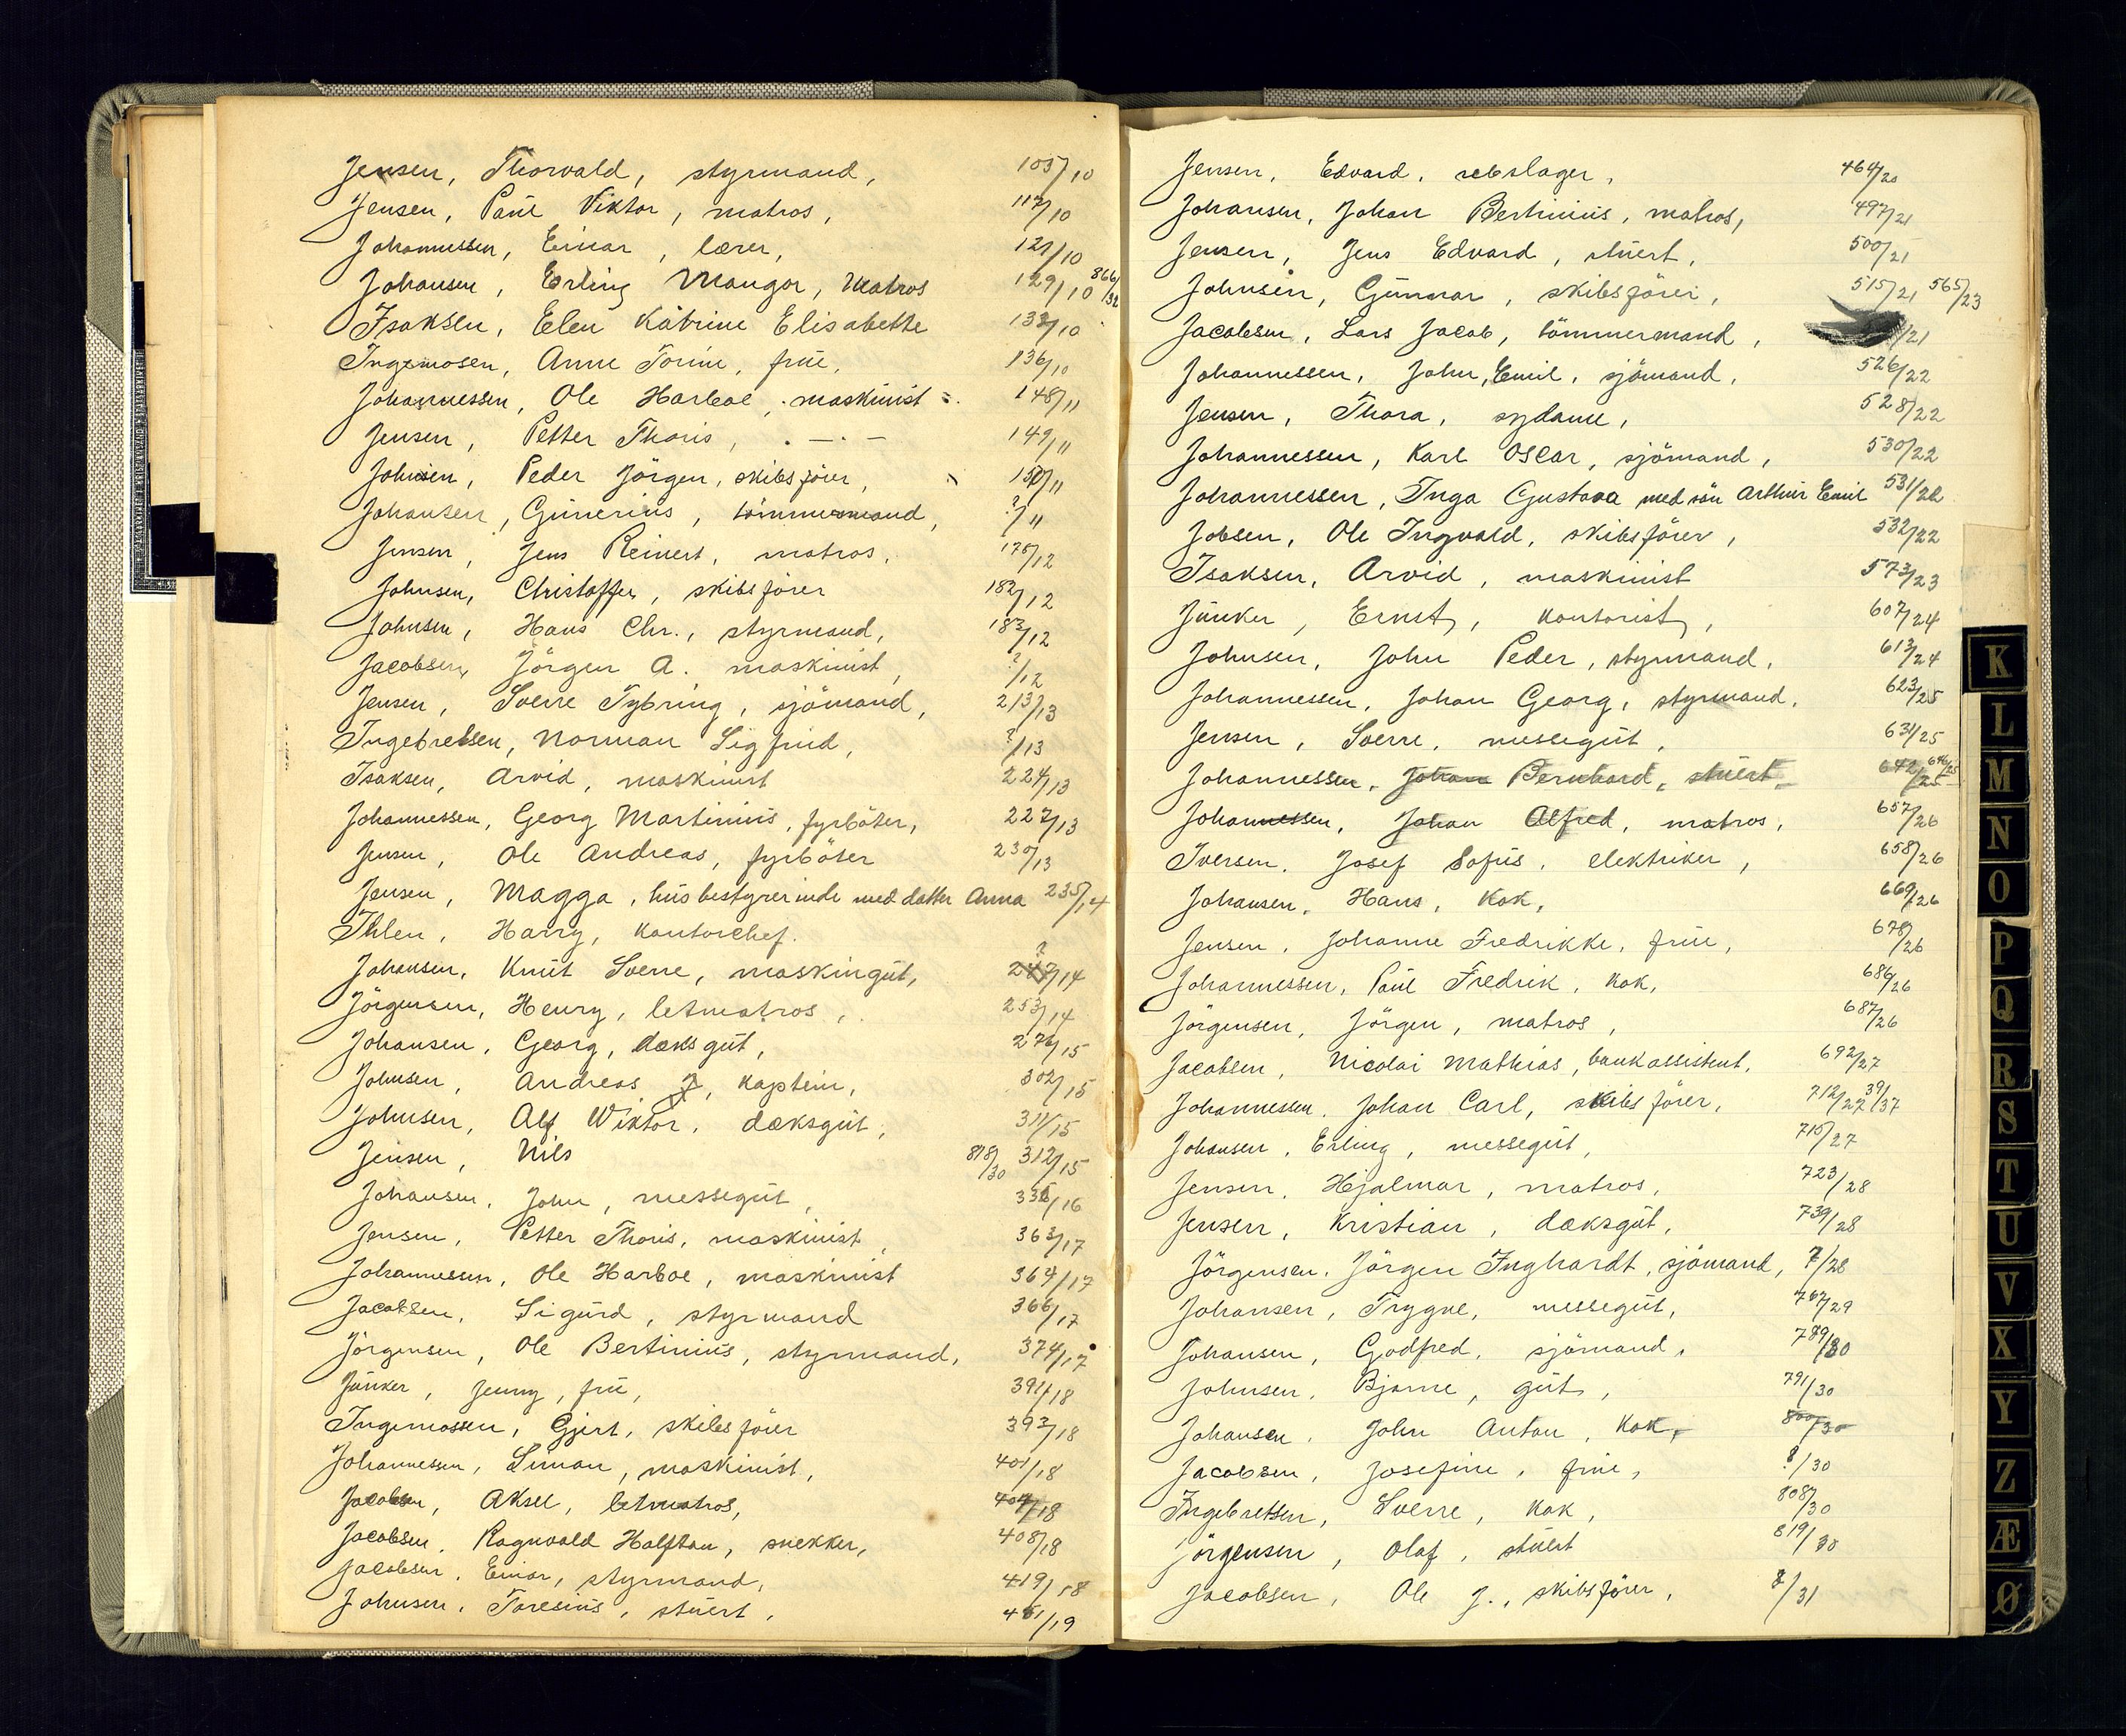 Jensen, Thorvald, styrmand, 105/10
Jensen, Paul Viktor, matros, 112/10
Johannessen, Einar, lærer, 121/10
Johansen, Erling Mangor, Matros 129/10 866/32
Isaksen, Elen Katrine Elisabette 132/10
Ingemosen, Anne Torine, frue, 136/10
Johannessen, Ole Harboe, maskinist 148/11
Jensen, Petter Thoris, . — . — 149/11
Johnsen, Peder Jörgen, skibsförer, 150/11
Johansen, Gunerius, tömmermand, ?/11
Jensen, Jens Reinert, matros, 175/12
Johnsen, Christoffer, skibsförer 182/12
Johnsen, Hans Chr., styrmand, 183/12
Jacobsen, Jörgen A. maskinist, ?/12
Jensen, Sverre Tybring, sjömand, 213/13
Ingebretsen, Norman Sigfrid, ?/13
Isaksen, Arvid, maskinist 224/13
Johannessen, Georg Martinius, fyrböter, 227/13
Jensen, Ole Andreas, fyrböter 230/13
Jensen, Magga, husbestyrerinde med datter Anna 235/14
Ihlen, Harry, Kontorchef.
Johansen, Knut Sverre, maskingut, 247/14 ?
Jörgensen, Henry, letmatros, 253/14
Johansen, Georg, dæksgut, /15
Johnsen, Andreas J, kaptein, 302/15
Johnsen, Alf Wiktor, dæksgut, 311/15
Jensen, Nils 818/30 312/15
Johansen, John, messegut, /16
Jensen, Petter Thoris, maskinist, 363/17
Johannessen, Ole Harboe, maskinist 364/17
Jacobsen, Sigurd, styrmand 366/17
Jörgensen, Ole Bertinius, styrmand, 374/17
Junker, Jenny, frue, 391/18
Ingemossen, Gjert, skibsförer 393/18
Johannessen, Simon, maskinist, 401/18
Jacobsen, Aksel, letmatros, 404/18
Jacobsen, Ragnvald Halftan, snekker, 408/18
Jacobsen, Einar, styrmand, 419/18
Johnsen, Toresius, stuert, 451/19
Jensen, Edvard, rebslager, 464/20
Johansen, Johan Bertinius, matros, 497/21
Jensen, Jens Edvard, stuert, 500/21
Johnsen, Gunnar, skibsförer, 515/21 565/23
Jacobsen, Lars Jacob, tömmermand, /21
Johannessen, John, Emil, sjömand, 526/22
Jensen, Thora, sydame, 528/22
Johannessen, Karl Oscar, sjömand, 530/22
Johannessen, Inga Gustava med sön Arthur Emil 531/22
Jobsen, Ole Ingvald, skibsförer, 532/22
Isaksen, Arvid, maskinist 573/23
Junker, Ernst, kontorist, 607/24
Johnsen, John Peder, styrmand, 613/24
Johannessen, Johan Georg, styrmand, 623/25
Jensen, Sverre, messegut, 631/25
Johannessen, Johan Bernhard, stuert, 642/25 646/25
Johannessen, Johan Alfred, matros, 657/26
Iversen, Josef Sofus, elektriker, 658/26
Johansen, Hans, kok, 669/26
Jensen, Johanne Fredrikke, frue, 678/26
Johannessen, Paul Fredrik, kok, 686/26
Jörgensen, Jörgen, matros, 687/26
Jacobsen, Nicolai Mathias, bankassistent, 692/27
Johannessen, Johan Carl, skibsförer, 712/27 39/37
Johansen, Erling, messegut, 715/27
Jensen, Hjalmar, matros, 723/28
Jensen, Kristian, dæksgut, 739/28
Jörgensen, Jörgen Inghardt, sjömand, ?/28
Johansen, Trygve, messegut, 767/29
Johansen, Godfred, sjömand, 789/30
Johnsen, Bjarne, gut, 791/30
Johansen, John Anton, kok, 800/30
Jacobsen, Josefine, frue, ?/30
Ingebretsen, Sverre, kok, 808/30
Jörgensen, Olaf, stuert 819/30
Jacobsen, Ole J., skibsförer, ?/31
K
L
M
N
O
P
Q
R
S
T
U
V
X
Y
Z
Æ
Ø